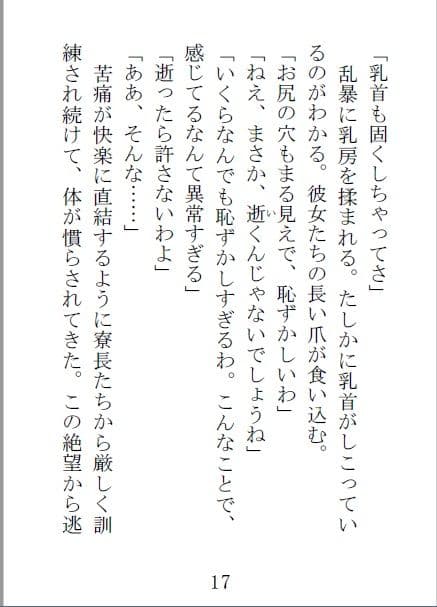 「乳首も固くしちゃってさ」
　乱暴に乳房を揉まれる。たしかに乳首がしこってい
るのがわかる。彼女たちの長い爪が食い込む。
「お尻の穴もまる見えで、恥ずかしいわ」
「ねえ、まさか、逝くんじゃないでしょうね」
い
「いくらなんでも恥ずかしすぎるわ。こんなことで、
感じてるなんて異常すぎる」
「逝ったら許さないわよ」
「ああ、そんな……」
　苦痛が快楽に直結するように寮長たちから厳しく訓
練され続けて、体が慣らされてきた。この絶望から逃
17